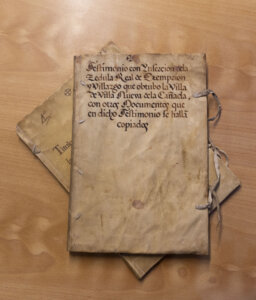 Testimonio con Ynsercion de la
Zedula Real de Exempzion
y Villazgo que obtubo la Villa
de Villa Nueva de la Cañada,
con otros Documentos que
en dicho Testimonio se hallã
copiados